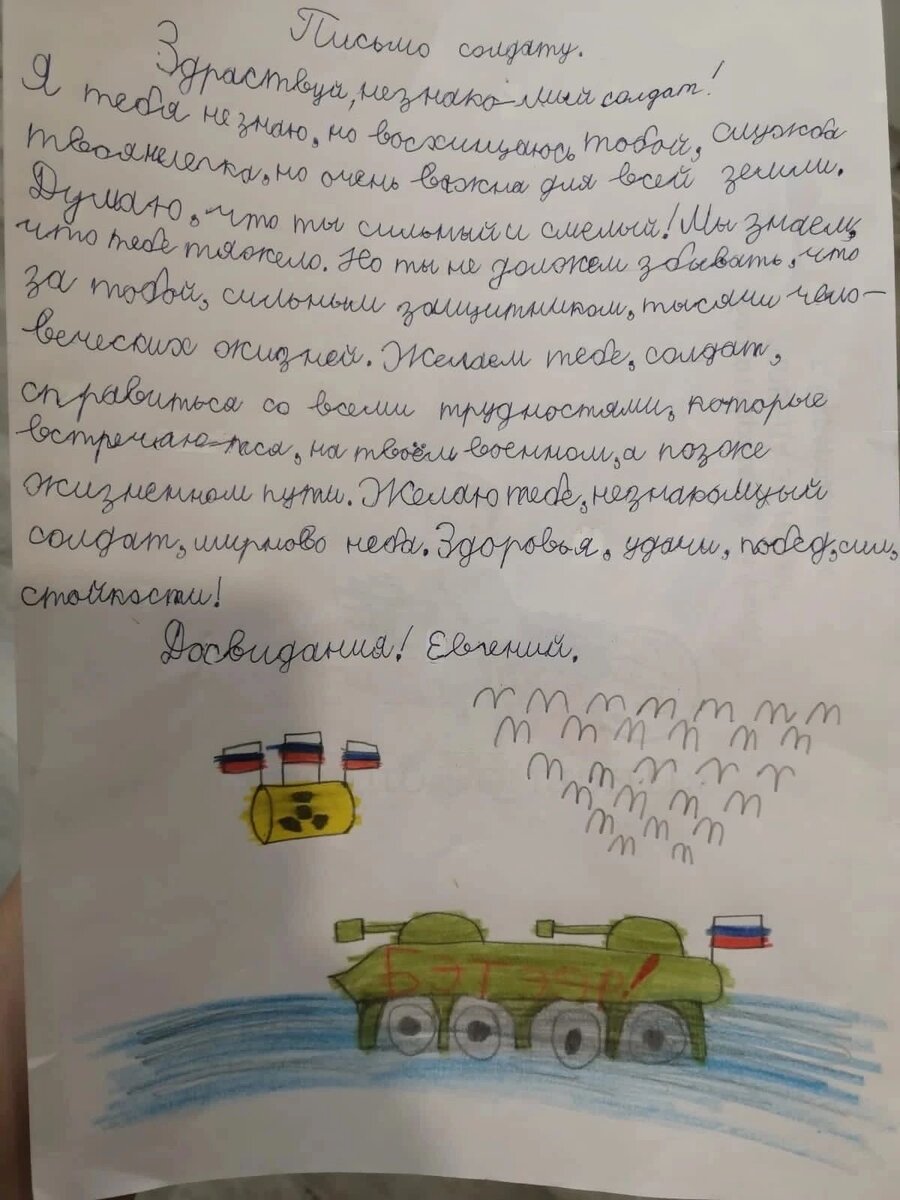 Письмо солдату.
Здраствуй, незнако-мый солдат!
Я тебя незнаю, но восхищаюсь тобой, служба
твоянелегка, но очень важна для всей земли.
Думаю, что ты сильный и смелый! Мы знаем,
что тебе тяжело. Но ты не должен збывать, что
за тобой, сильным защитником, тысячи чело-
веческих жизней. Желаем тебе, солдат,
справиться со всеми трудностями, которые
встречаю-тся, на твоём военном, а позже
жизненном пути. Желаю тебе, незнакомый
солдат, мирново неба. Здоровья, удачи, побед, сил,
стойкости!
Досвидания! Евгений.
БЭТЭЭР!